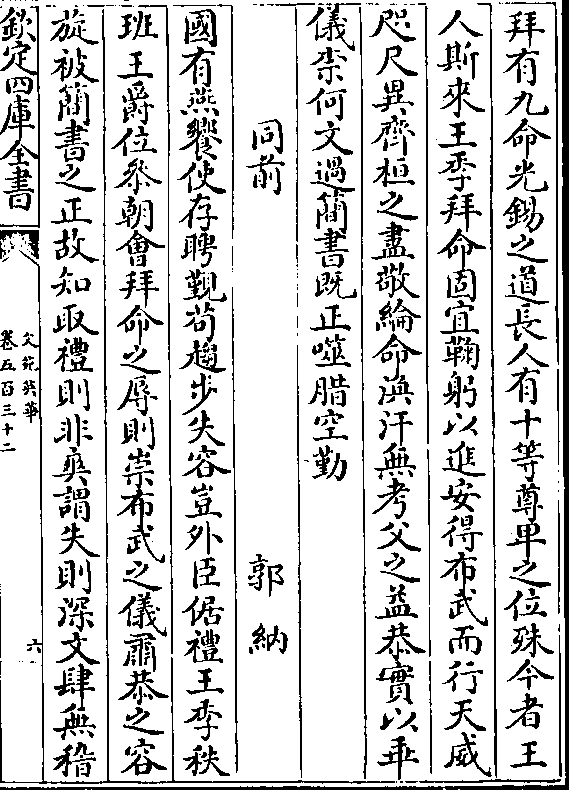 拜有九命光錫之道長人有十等尊卑之位殊今者王
人斯來王季拜命固宜鞠躬以進安得布武而行天威
咫尺異齊桓之盡敬綸命渙汗無考父之益恭實以乖
儀柰何文過簡書既正噬腊空勤
同前 郭納
國有燕饗使存聘覲苟趨步失容豈外臣倨禮王季秩
班王爵位叅朝會拜命之辱則崇布武之儀肅恭之容
旋被簡書之正故知取禮則非爽謂失則深文肆無稽
欽定四庫全書
文苑英華
卷五百三十二
六